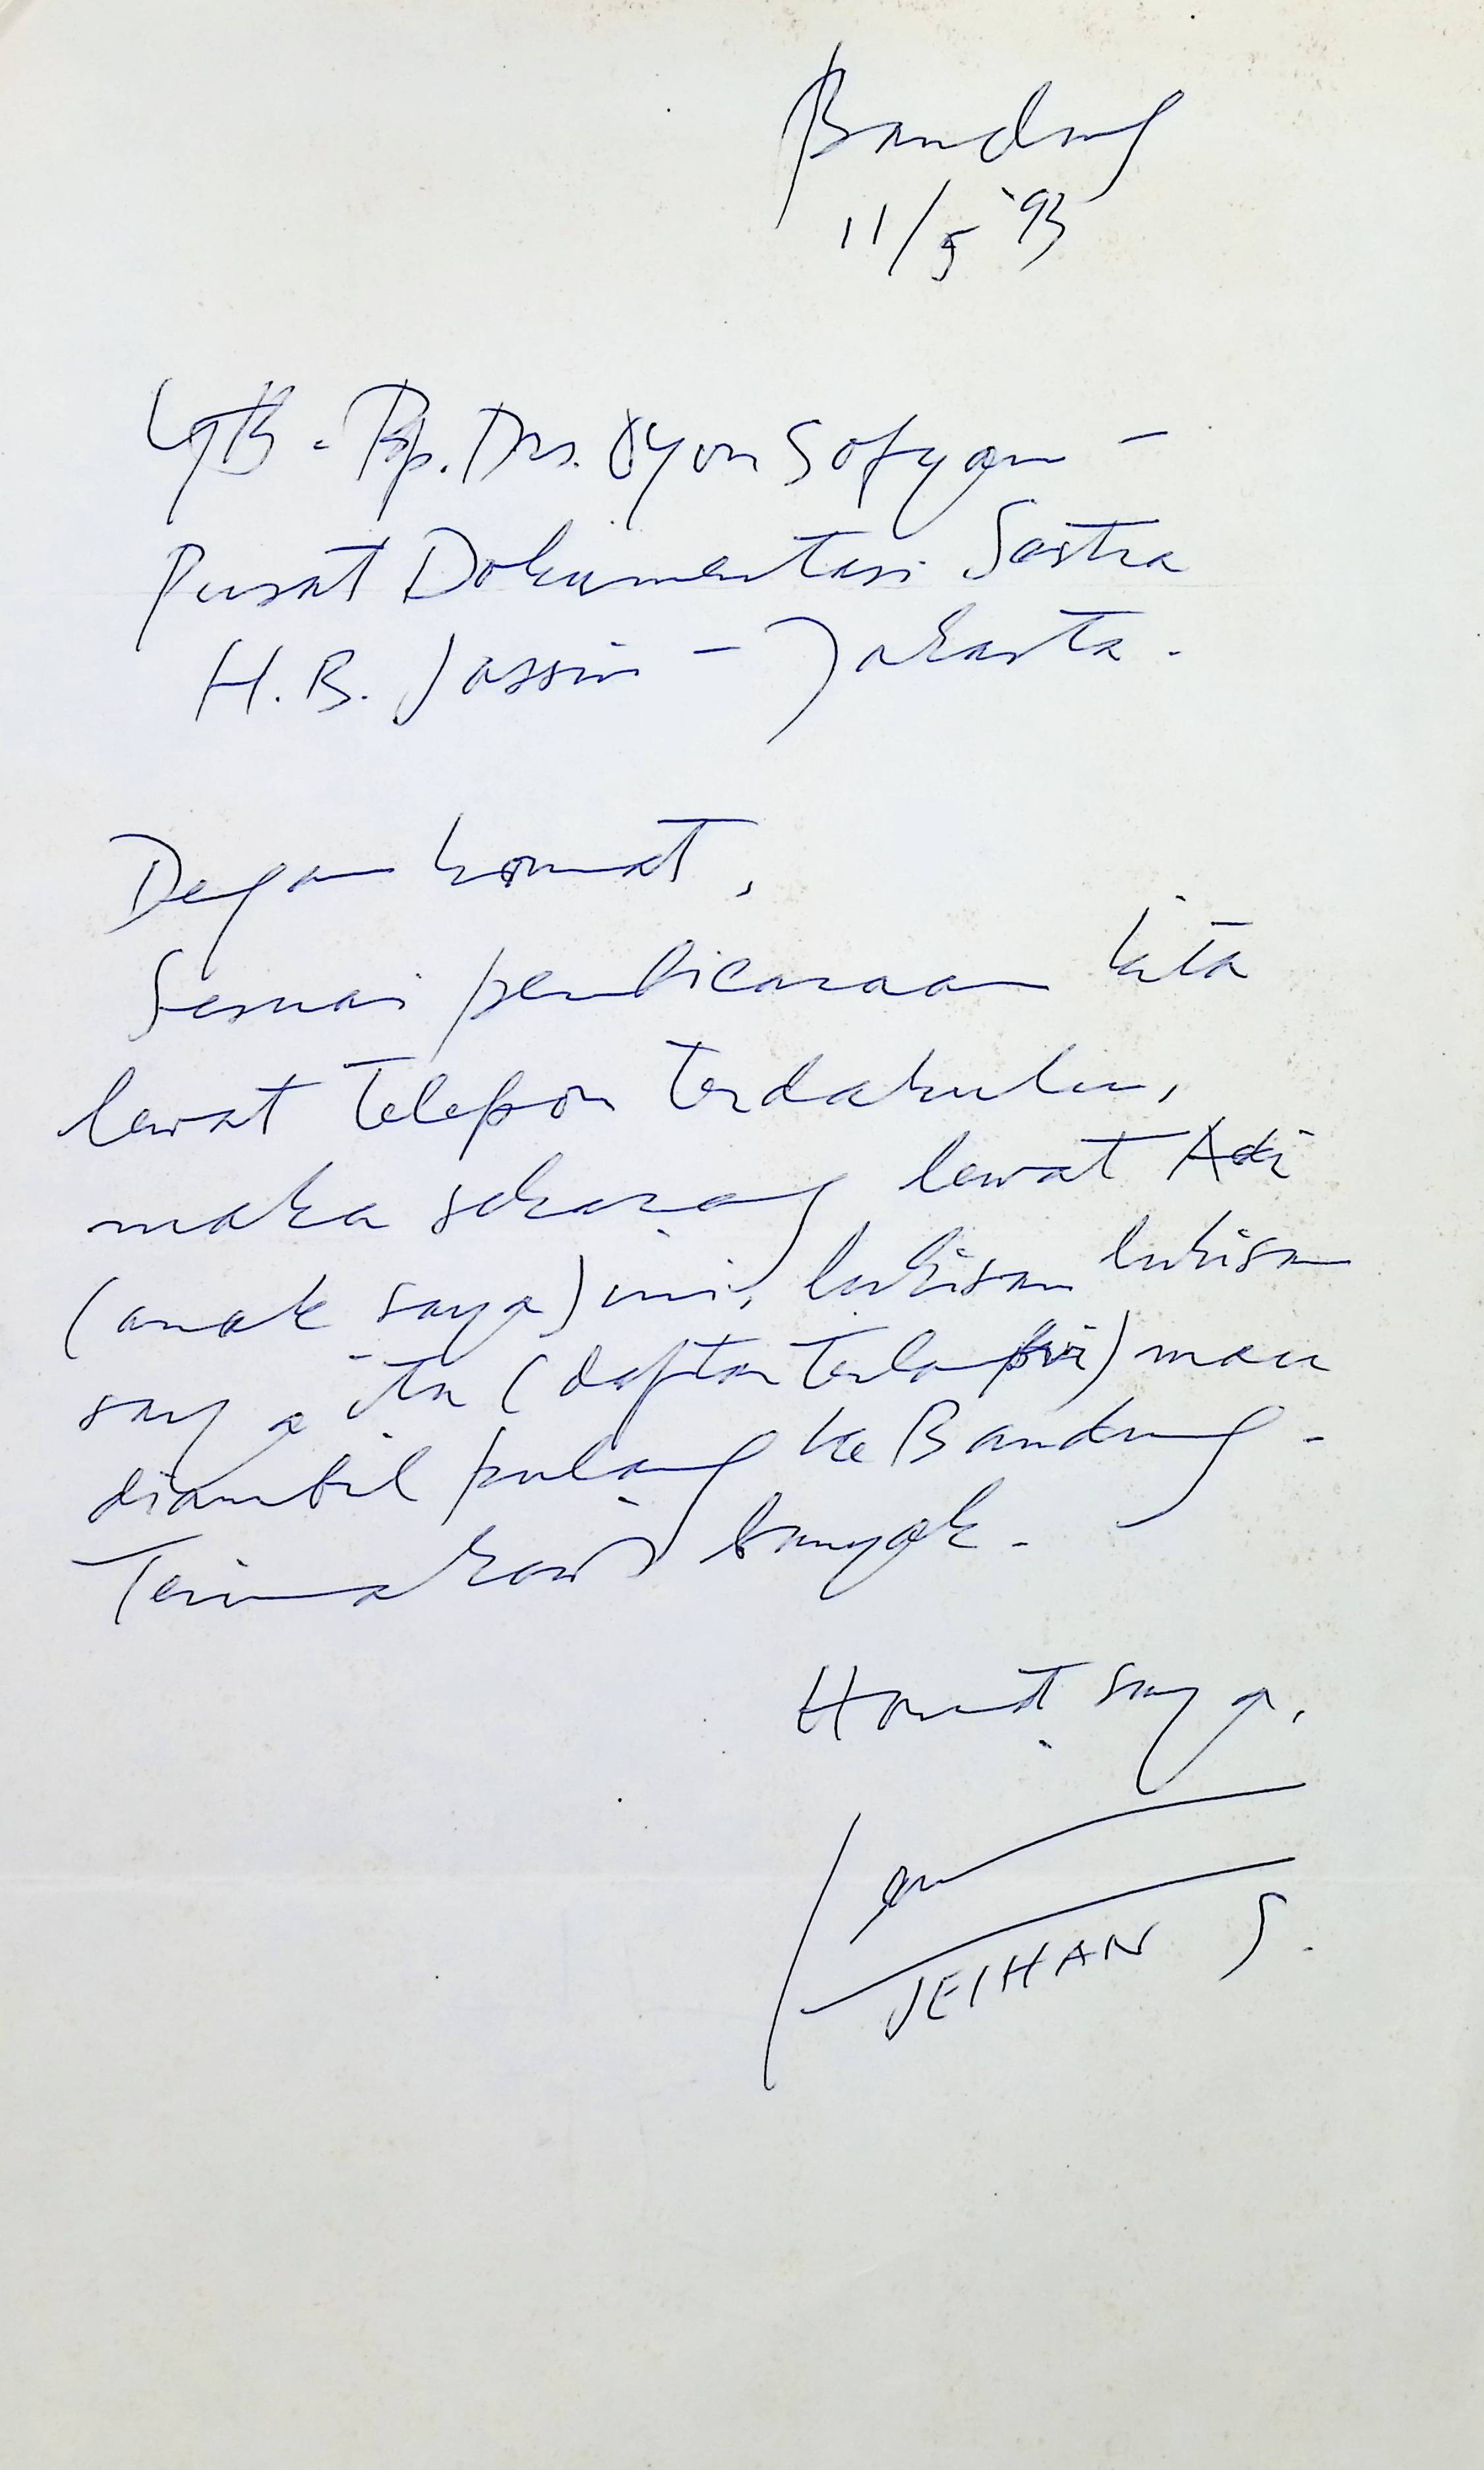 Bandung
11/5 '93
Ytk. Bp. Drs. Oyon Sofyan -
Pusat Dokumentasi Sastra
H.B. Jassin - Jakarta.
Dengan hormat,
Sesuai pembicaraan kita
lewat telepon terdahulu,
maka sekarang lewat Adi
(anak saya) ini, lukisan lukisan
saya itu (daftar terlampir) mau
diambil pulang ke Bandung.
Terima kasih banyak.
Hormat saya,
JEIHAN S.